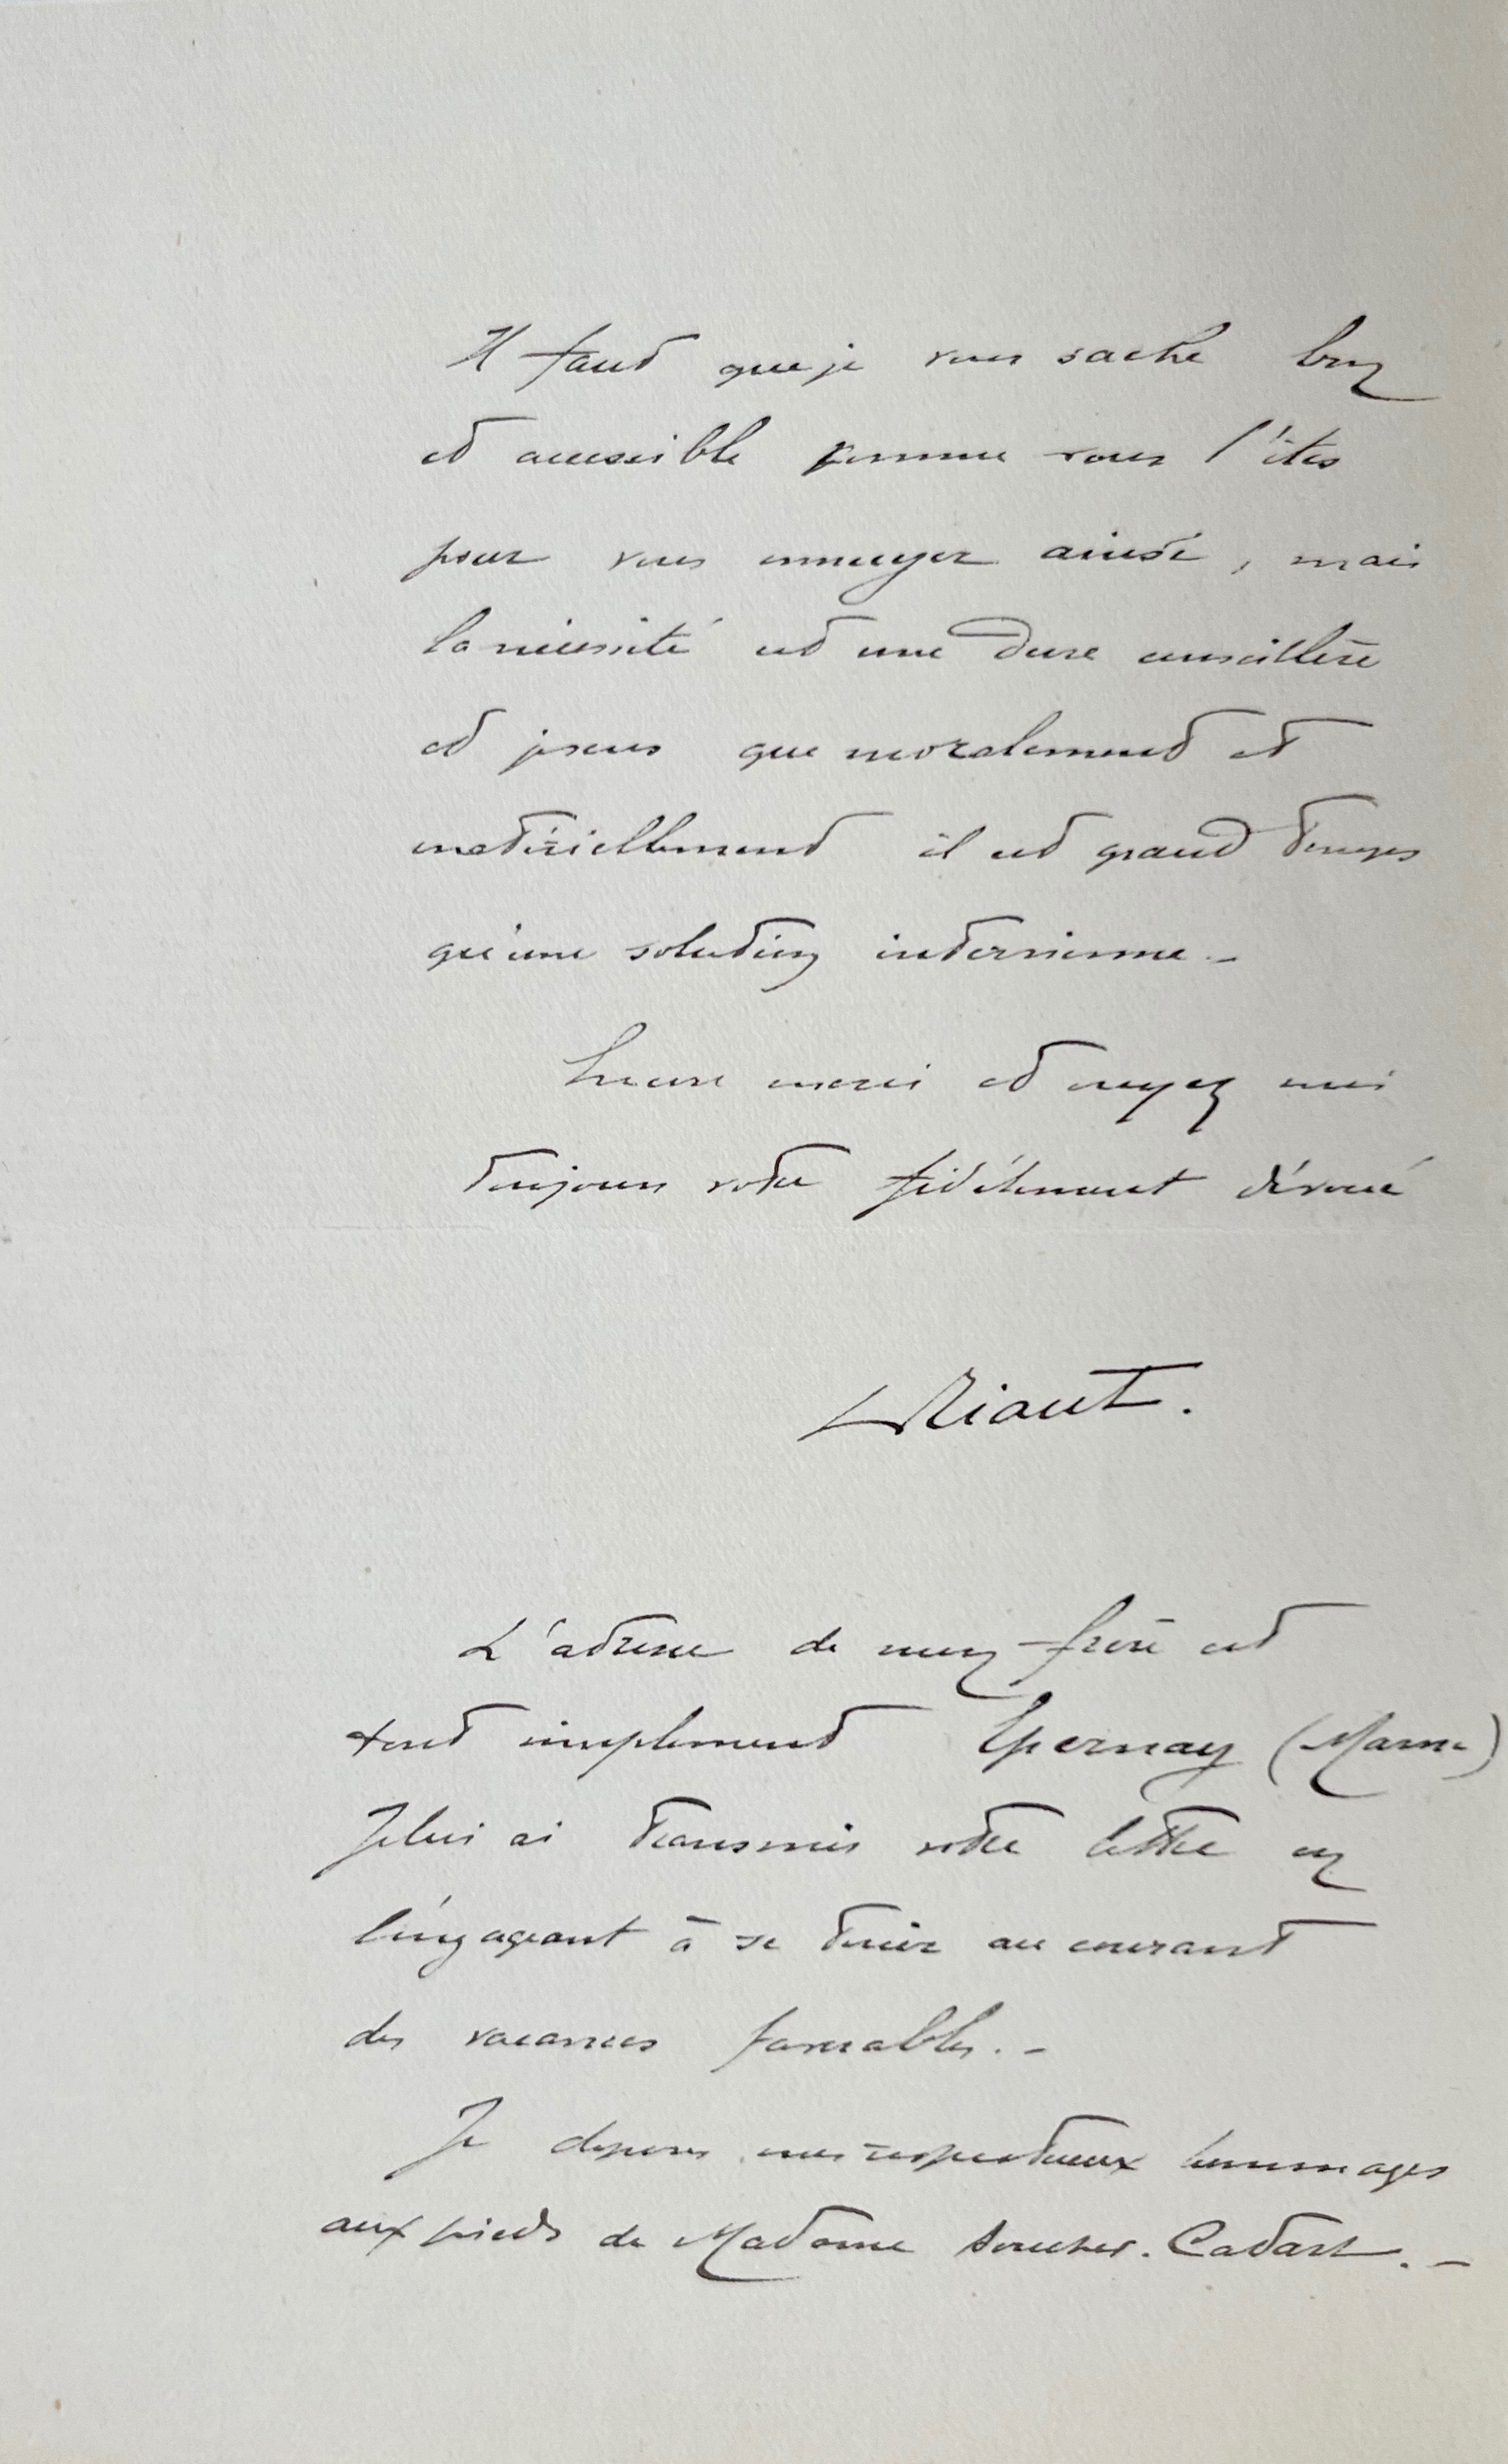 Il faut que je vous sache bon
et accessible comme vous l'êtes
pour vous ennuyer ainsi, mais
la nécessité est une dure conseillère
et je sens que moralement et
matériellement il est grand temps
qu'une solution intervienne. -
Encore merci et croyez moi
toujours votre fidèlement dévoué
Riaut.
L'adresse de mon frère est
tout simplement Epernay (Marne)
Je lui ai transmis votre lettre en
l'engageant à se tenir au courant
des vacances favorables. -
Je dépose mes respectueux hommages
aux pieds de Madame Cadart. -